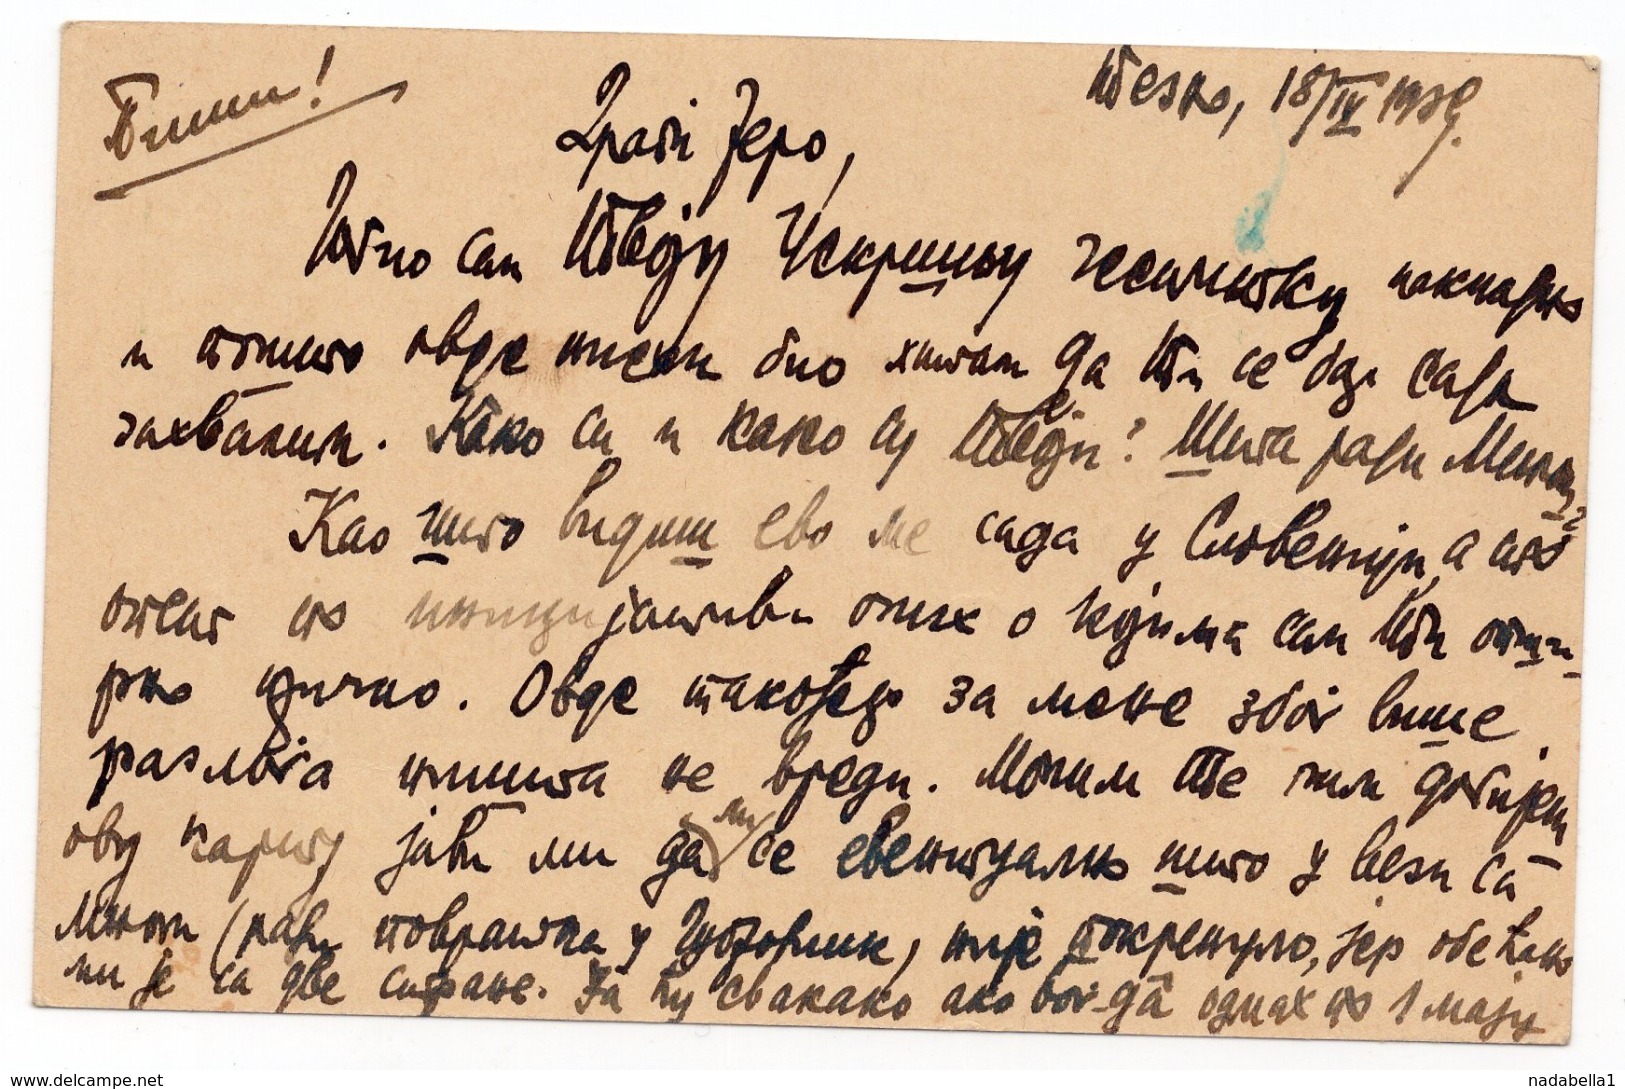 Пиши!
18/IV 1939.
Драги Јеро,
сам Твоју Ускршњу честитку накнадно
и пошто овде нисам био хитам да Ти се бар сада
захвалим. Како си и како су Твоји? Шта ради
Као што видиш ево ме сада у Словенији, а
опет по иницијативи оних о којима сам Ти опши-
рно причао. Овде такођер за мене због више
разлога ништа не вреди. Молим Те чим добијеш
ову карту јави ми да ли се евентуално што у вези са
мном (ради повратка у није покренуло, јер обећано
ми је са две стране. Ја ћу свакако ако Бог да одмах по 1 мају
delcampe.net
nadabella1